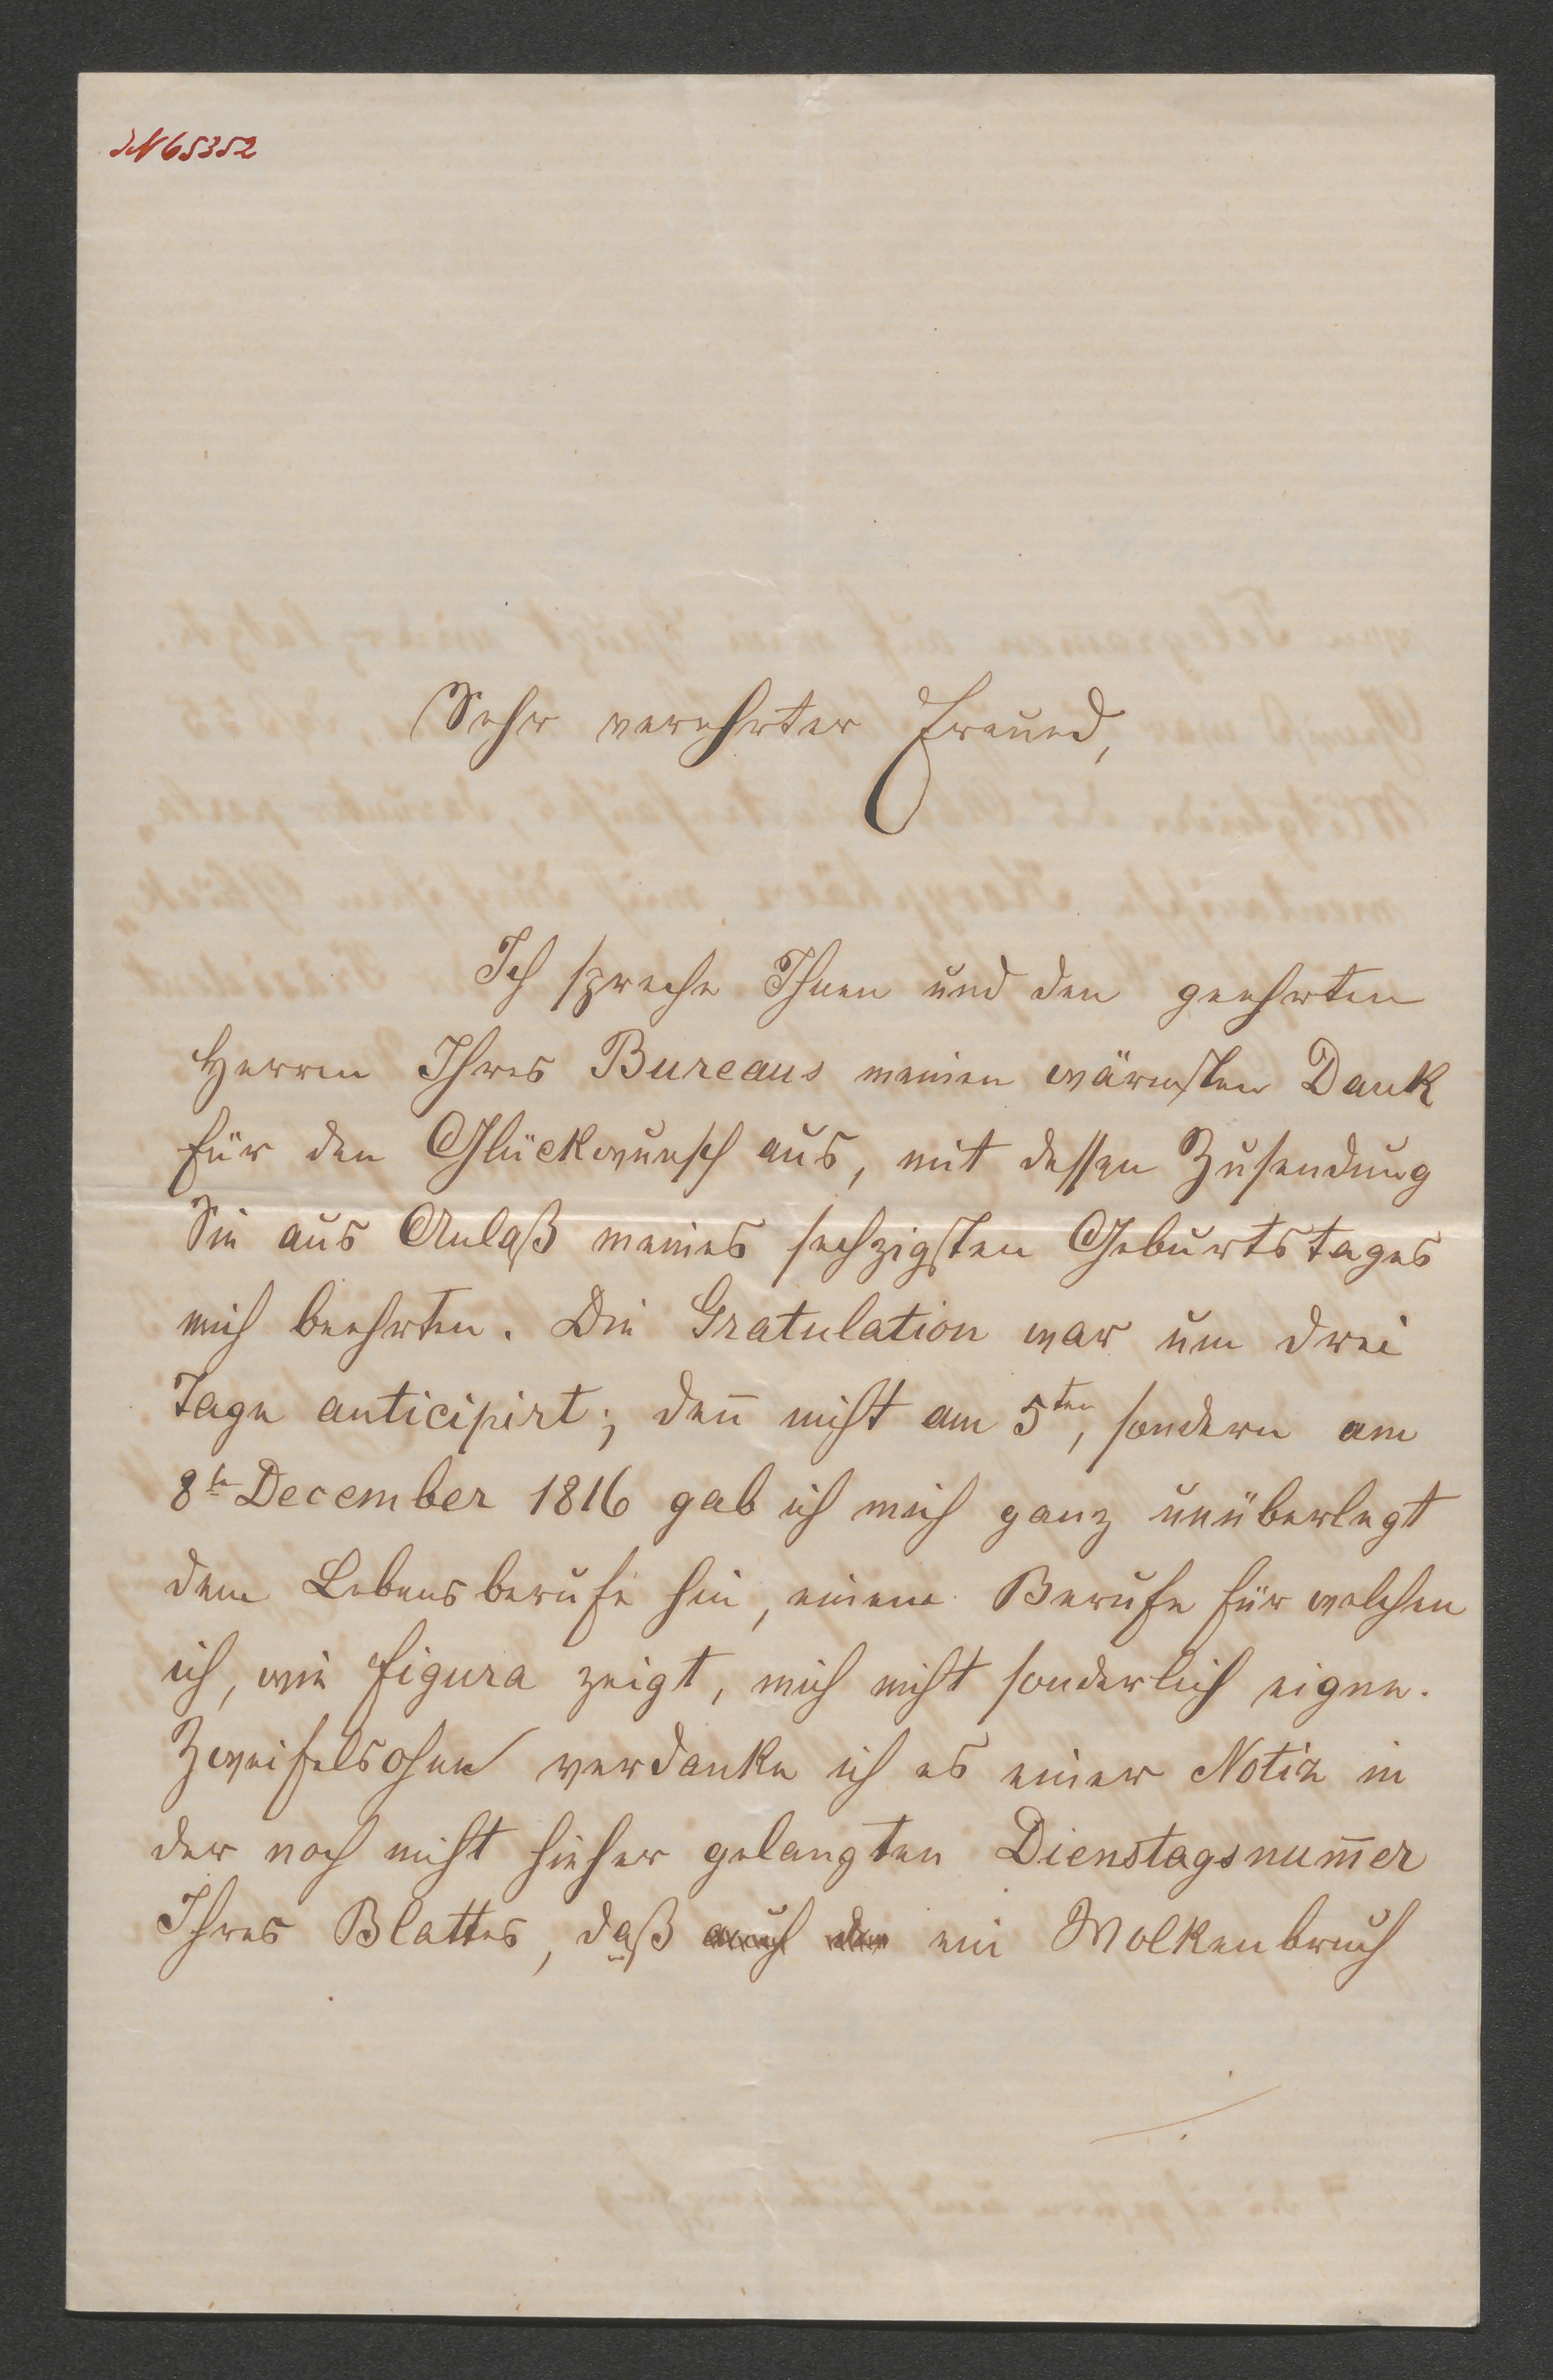 JN 65352
Sehr verehrter Freund,
Ich spreche Ihnen und den geehrten
Herren Ihres Bureaus meinen wärmsten Dank
für den Glückwunsch aus, mit dessen Zusendung
Sie aus Anlaß meines sechzigsten Geburtstages
mich beehrten. Die Gratulation war um drei
Tage anticipirt; den̄ nicht am 5ten, sondern am
8ten December 1816 gab ich mich ganz unüberlegt
dem Lebensberufe hin, einem Berufe für welchen
ich, wie figura zeigt, mich nicht sonderlich eigne.
Zweifelsohne verdanke ich es einer Notiz in
der noch nicht hieher gelangten Dienstagsnum̄er
Ihres Blattes, daß auch den ein Wolkenbruch